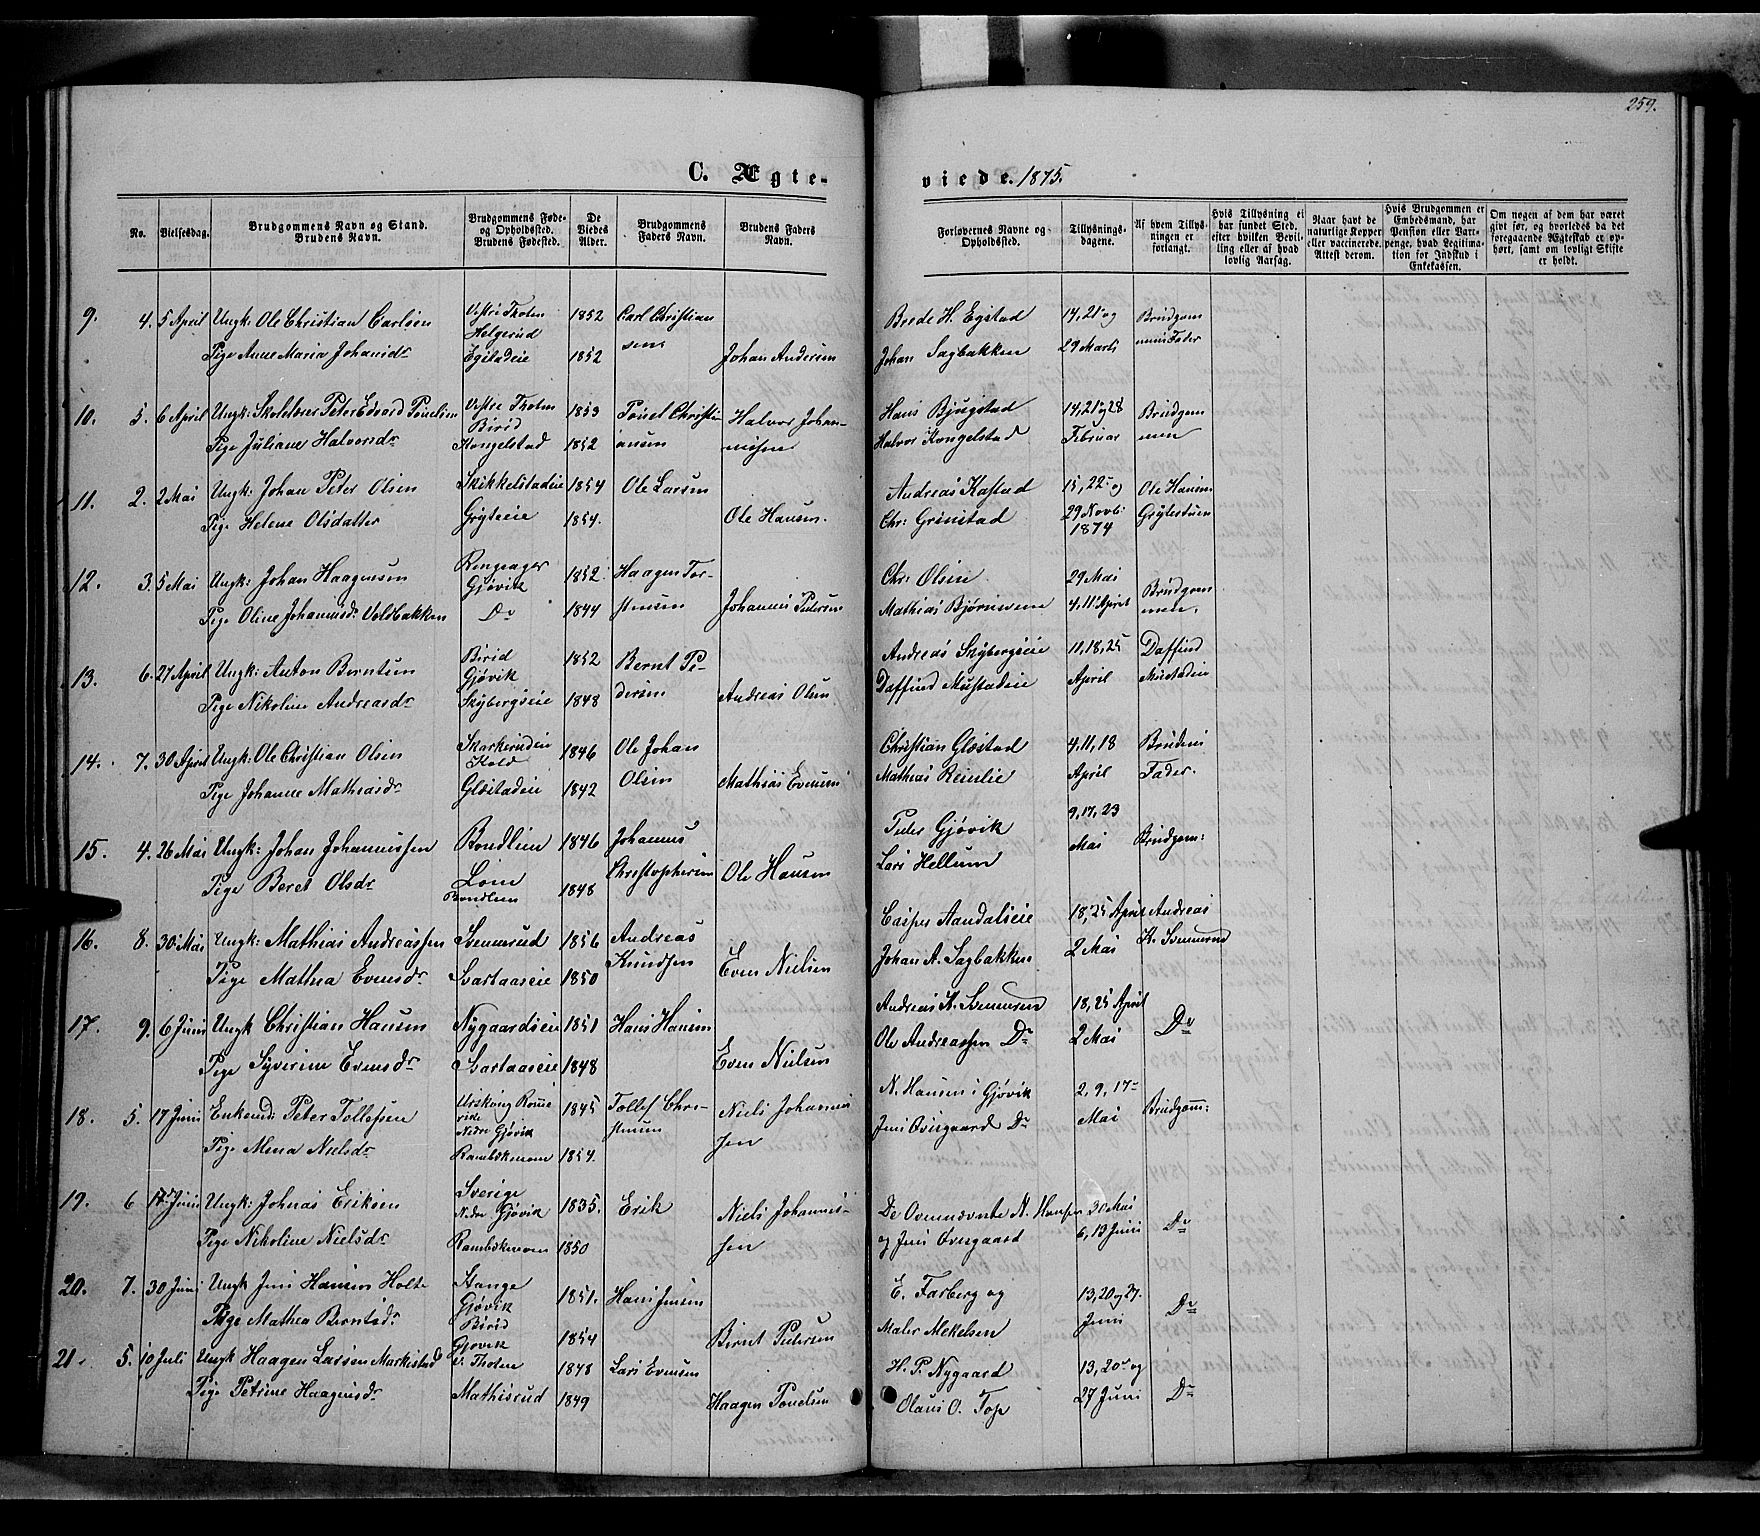 259.
C. Ægte-
viede. 1875.
No.
Vielsesdag.
Brudgommens Navn og Stand.
Brudens Navn.
Brudgommens Føde-
og Opholdssted.
Brudens Fødested.
De
Viedes
Alder.
Brudgommens
Faders Navn.
Brudens Faders
Navn.
Forlovernes Navne og
Opholdssted.
Tillysnings-
dagene.
Af hvem Tillys-
ningen er
forlangt.
Hvis Tillysning ei
har fundet Sted,
efter hvilken Bevil-
ling eller af hvad
lovlig Aarsag.
Naar havt de
naturlige Kopper
eller vaccinerede.
Attest derom.
Hvis Brudgommen er
Embedsmand, har
Pension eller Var-
penge, hvad Legitima-
tion for Indskud i
Enkekassen.
Om nogen af dem har været
givt før, og hvorledes da det
foregaaende Ægteskab er op-
hørt, samt om lovligt Skifte
er holdt.
9. 4. 5 April Ungk: Ole Christian Carlsen Vestre Thoten 1852 Carl Christian
Helgerud sen
Pige Anne Maria Johansdr Egstadeie 1852 Johan Andersen
Brede H. Egstad 14, 21 og Brudgom
Johan Sagbakken 29 Marts mens Fader
10. 5. 6 April Ungk: Skolelærer Peter Edvard Poulsen Vestre Thoten 1853 Poul Christi- Halvor Johan-
Birid
Pige Juliane Halvorsdr Kongelstad 1852 ansen nissen
Hans Bjugstad 14, 21 og 28 Brudgom
Halvor Kongelstad Februar men
11. 2. 2 Mai Ungk: Johan Peter Olsen Skikkelstadeie 1854 Ole Larsen
Pige Helene Olsdatter Gryteeie 1854. Ole Hansen.
Andreas Kastad 15, 22 og Ole Hansen
Chr: Grinstad 29 Novb: Grytestuen
1874
12. 3. 5 Mai Ungk: Johan Haagensen Ringsager 1852 Haagen Tor-
Gjøvik
Pige Oline Johannesd: Voldbakken Do 1844 stensen Johannes Petersen
Chr: Olsen 29 Mai Brudgom
Mathias Bjørnsveen 4, 11 April men.
13. 6. 27 April Ungk: Anton Berntsen Birid 1852 Bernt Pe-
Gjøvik
Pige Nikoline Andreasdr Skybergseie 1848 dersen Andreas Olsen
Andreas Skybergseie 11, 18, 25 Daffind
Daffind Mustadeie April Mustadeie
14. 7. 30 April Ungk: Ole Christian Olsen Skarkerudeie 1846 Ole Johan
Kold
Pige Johanne Mathiasdr Glæstadeie 1842 Olsen Mathias Evensen
Christian Glæstad 4, 11, 18 Brudens
Mathias Reinlie April Fader.
15. 4. 26 Mai Ungk: Johan Johannessen Bondlien 1846 Johannes
Pige Beret Olsdr Lom 1848 Christophersen Ole Hansen
Bondlien
Peter Gjøvik 9, 17, 23 Brudgom:
Lars Hellum Mai
16. 8. 30 Mai Ungk: Mathias Andreassen Svennerud 1856 Andreas
Pige Mathea Evensdr Svartaaseie 1850 Knudsen Even Nielsen
Casper Aandalseie 18, 25 April Andreas
Johan A. Sagbakken 2 Mai K. Svennerud
17. 9. 6 Juni Ungk Christian Hansen Nygaardseie 1851 Hans Hansen
Pige Syverine Evensdr Svartaaseie 1848 Even Nielsen
Andreas K. Svennerud 18, 25 April
Ole Andreassen Do 2 Mai Do
18. 5. 17 Juni Enkemd: Peter Tollefsen Urskoug Rome- 1845 Tollef Chri- Niels Johannes
rike
Nedre Gjøvik stensen sen
Pige Mina Nielsdr Rambekmoen 1854.
N. Hansen i Gjøvik 2, 9, 17 Brudgom:
Jens Oversgaard Do Mai
19. 6 17 Juni Ungk: Johnas Eriksen Sverige 1835. Erik Niels Johannes-
Nedre Gjøvik
Pige Nikoline Nielsdr Rambekmoen 1850 sen
De Ovennævnte N. Hansen 30 Mai Do
og Jens Oversgaard 6, 13 Juni
20. 7. 30 Juni Ungk Jens Hansen Holte Stange 1851. Hans Jensen
Gjøvik
Pige Mathea Berntsdr Birid 1854 Bernt Petersen
Gjøvik
E. Farberg og 13, 20 og 27. Do
Maler Mekelsen Juni
21. 5. 10 Juli Ungk Haagen Larsen Markestad V. Thoten 1848 Lars Evensen
Pige Petrine Haagensdr Mathisrud 1849 Haagen Poulsen
H. P. Nygaard 13, 20 og Do
Olaus O. Top 27 Juni